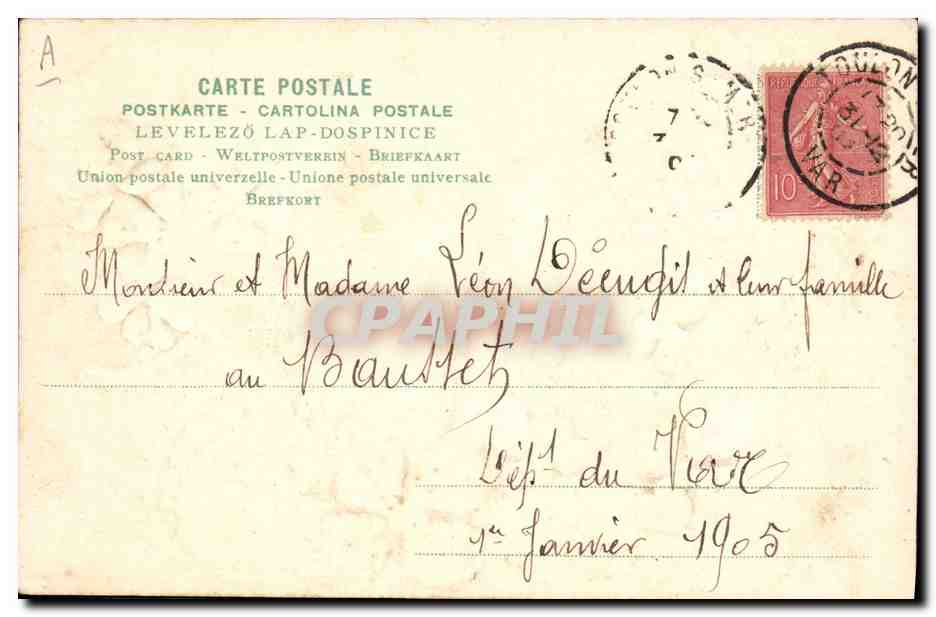 A
CARTE POSTALE
POSTKARTE - CARTOLINA POSTALE
LEVELEZŐ LAP-DOSPINICE
POST CARD - WELTPOSTVEREIN - BRIEFKAART
Union postale univerzelle - Unione postale universale
BREFKORT
TOULON
VAR
10
Monsieur et Madame Léon Décugis et leur famille
CPAPHIL
au Bausset
Dépt du Var
1er Janvier 1905